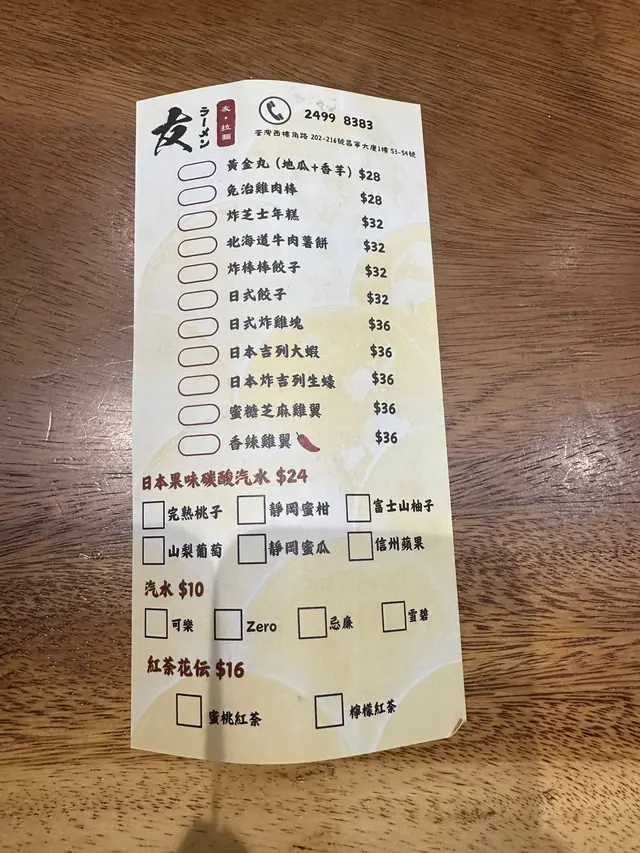 友
ラーメン
友・拉麵
2499 8383
荃灣西樓角路 202-216號昌寧大廈1樓 53-54號
黃金丸 (地瓜+香芋) $28
免治雞肉棒 $28
炸芝士年糕 $32
北海道牛肉薯餅 $32
炸棒棒餃子 $32
日式餃子 $32
日式炸雞塊 $36
日本吉列大蝦 $36
日本炸吉列生蠔 $36
蜜糖芝麻雞翼 $36
香辣雞翼 $36
日本果味碳酸汽水 $24
完熟桃子 靜岡蜜柑 富士山柚子
山梨葡萄 靜岡蜜瓜 信州蘋果
汽水 $10
可樂 Zero 忌廉 雪碧
紅茶花伝 $16
蜜桃紅茶 檸檬紅茶